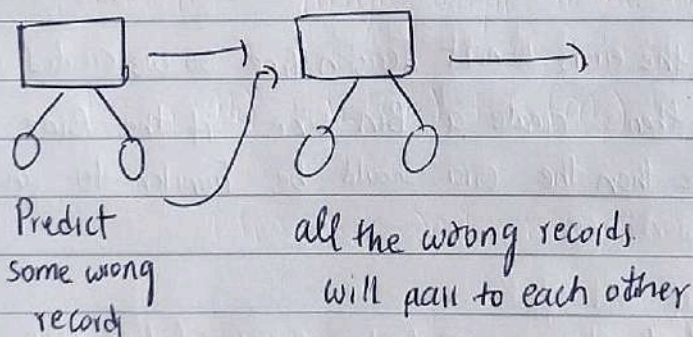 Predict
some wrong
record
all the wrong records
will pass to each other